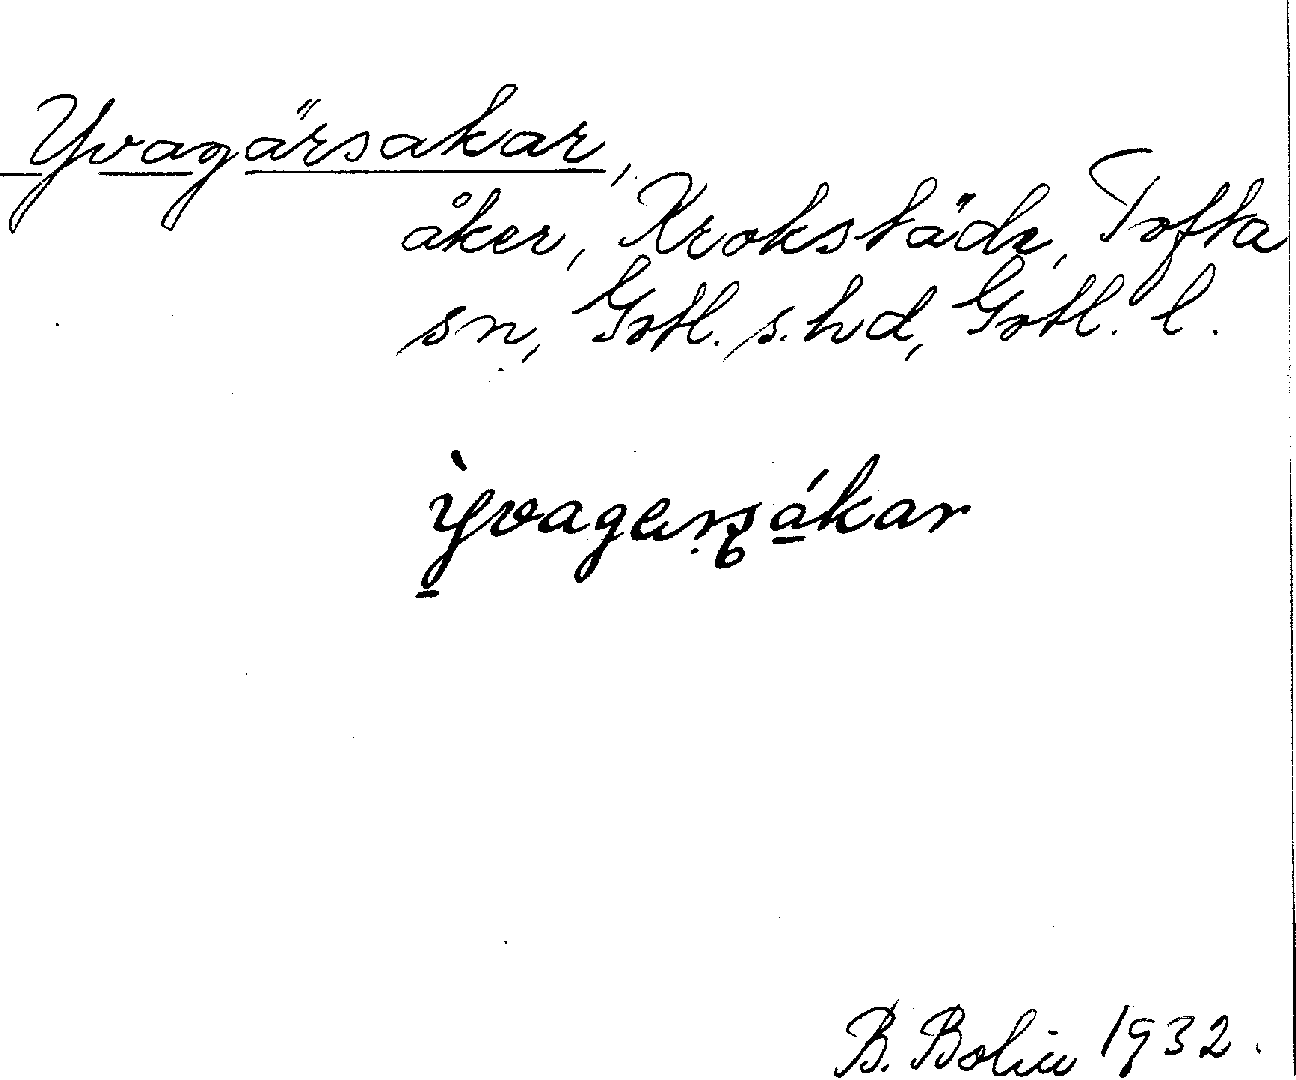 Yvagärsakar,
åker, Krokstäde, Tofta
sn, Gotl. s. hd, Gotl. l.
ỳvagarsákar
B. Bolin 1932.